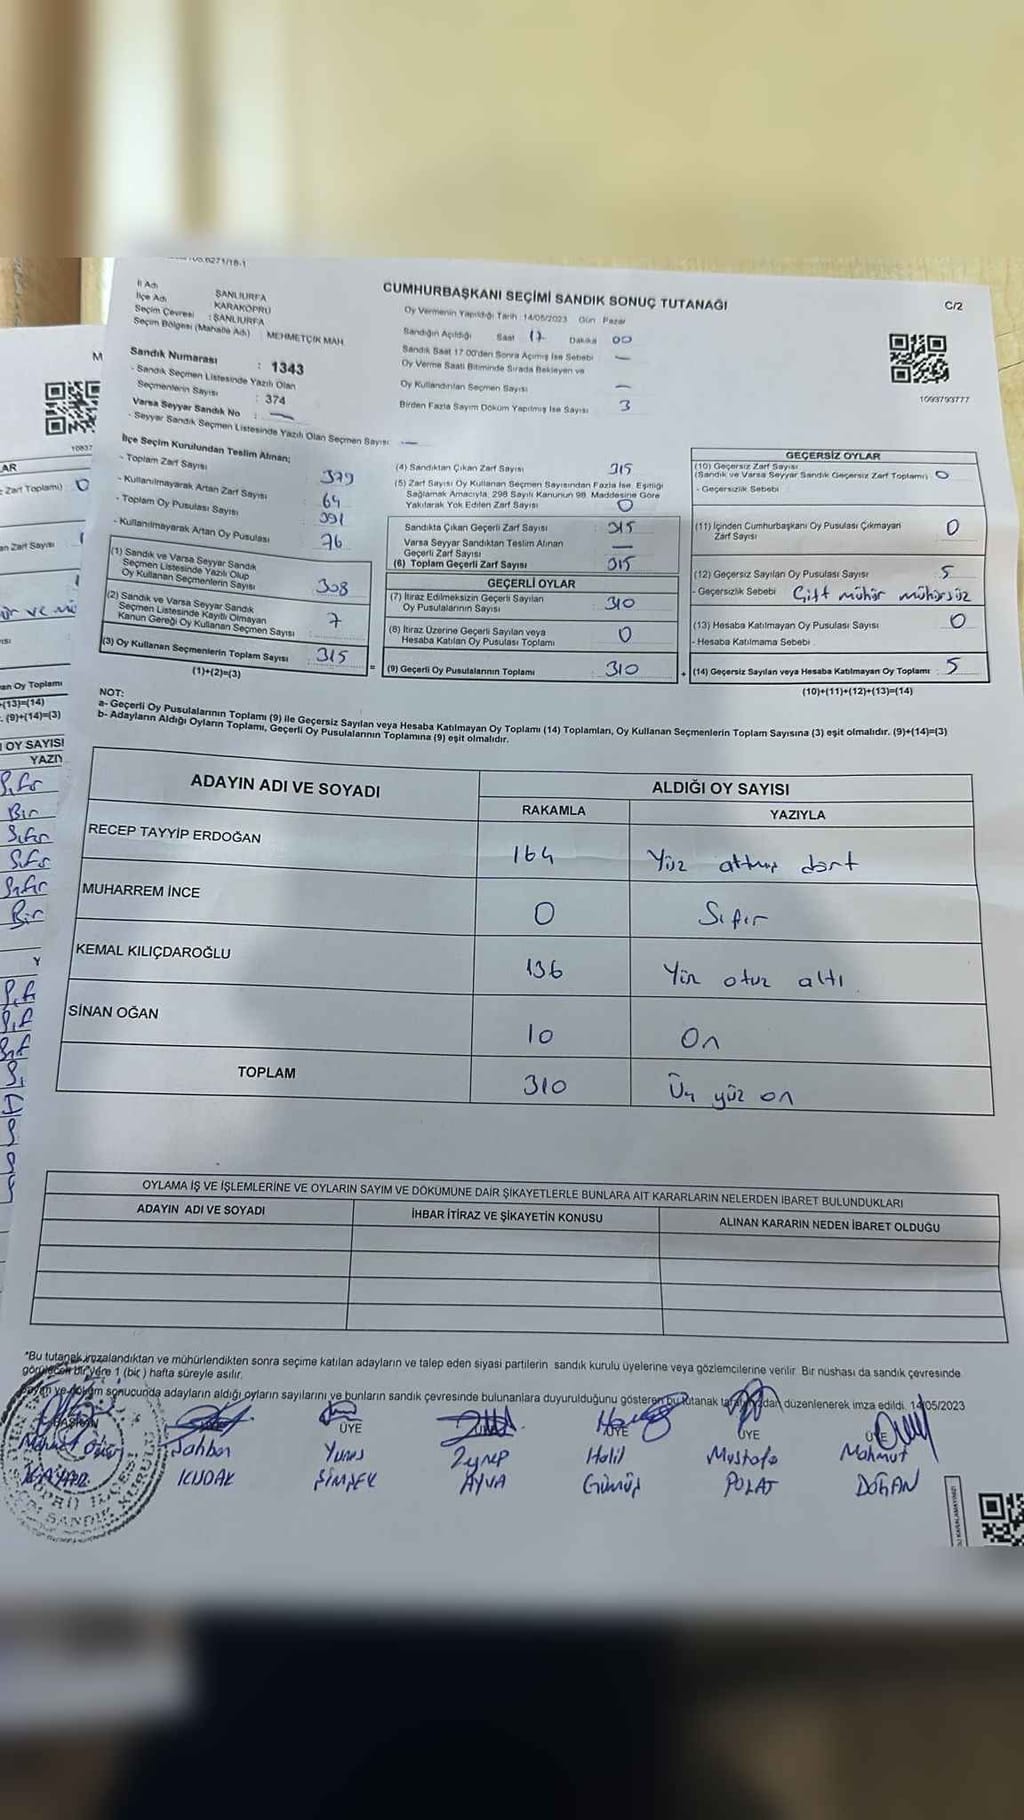 İl Adı ŞANLIURFA
İlçe Adı KARAKÖPRÜ
Seçim Çevresi : ŞANLIURFA
Seçim Bölgesi (Mahalle Adı) MEHMETÇİK MAH.
Sandık Numarası : 1343
- Sandık Seçmen Listesinde Yazılı Olan
Seçmenlerin Sayısı : 374
Varsa Seyyar Sandık No : —
- Seyyar Sandık Seçmen Listesinde Yazılı Olan Seçmen Sayısı —
CUMHURBAŞKANI SEÇİMİ SANDIK SONUÇ TUTANAĞI
C/2
Oy Vermenin Yapıldığı Tarih : 14/05/2023 Gün : Pazar
Sandığın Açıldığı Saat 17 Dakika 00
Sandık Saat 17.00'den Sonra Açılmış İse Sebebi —
Oy Verme Saati Bitiminde Sırada Bekleyen ve
Oy Kullandırılan Seçmen Sayısı —
Birden Fazla Sayım Döküm Yapılmış İse Sayısı 3
1093793777
İlçe Seçim Kurulundan Teslim Alınan;
- Toplam Zarf Sayısı 379
- Kullanılmayarak Artan Zarf Sayısı 64
- Toplam Oy Pusulası Sayısı 391
- Kullanılmayarak Artan Oy Pusulası 76
(1) Sandık ve Varsa Seyyar Sandık
Seçmen Listesinde Yazılı Olup
Oy Kullanan Seçmenlerin Sayısı 308
(2) Sandık ve Varsa Seyyar Sandık
Seçmen Listesinde Kayıtlı Olmayan
Kanun Gereği Oy Kullanan Seçmen Sayısı 7
(3) Oy Kullanan Seçmenlerin Toplam Sayısı 315
(1)+(2)=(3)
(4) Sandıktan Çıkan Zarf Sayısı 315
(5) Zarf Sayısı Oy Kullanan Seçmen Sayısından Fazla İse, Eşitliği
Sağlamak Amacıyla, 298 Sayılı Kanunun 98. Maddesine Göre
Yakılarak Yok Edilen Zarf Sayısı 0
Sandıkta Çıkan Geçerli Zarf Sayısı : 315
Varsa Seyyar Sandıktan Teslim Alınan
Geçerli Zarf Sayısı —
(6) Toplam Geçerli Zarf Sayısı 315
GEÇERLİ OYLAR
(7) İtiraz Edilmeksizin Geçerli Sayılan
Oy Pusulalarının Sayısı : 310
(8) İtiraz Üzerine Geçerli Sayılan veya
Hesaba Katılan Oy Pusulası Toplamı 0
= (9) Geçerli Oy Pusulalarının Toplamı 310
GEÇERSİZ OYLAR
(10) Geçersiz Zarf Sayısı
(Sandık ve Varsa Seyyar Sandık Geçersiz Zarf Toplamı) 0
- Geçersizlik Sebebi
(11) İçinden Cumhurbaşkanı Oy Pusulası Çıkmayan
Zarf Sayısı 0
(12) Geçersiz Sayılan Oy Pusulası Sayısı 5
- Geçersizlik Sebebi Çift mühür mühürsüz
(13) Hesaba Katılmayan Oy Pusulası Sayısı 0
- Hesaba Katılmama Sebebi
+ (14) Geçersiz Sayılan veya Hesaba Katılmayan Oy Toplamı : 5
(10)+(11)+(12)+(13)=(14)
NOT:
a- Geçerli Oy Pusulalarının Toplamı (9) ile Geçersiz Sayılan veya Hesaba Katılmayan Oy Toplamı (14) Toplamları, Oy Kullanan Seçmenlerin Toplam Sayısına (3) eşit olmalıdır. (9)+(14)=(3)
b- Adayların Aldığı Oyların Toplamı, Geçerli Oy Pusulalarının Toplamına (9) eşit olmalıdır.
ADAYIN ADI VE SOYADI ALDIĞI OY SAYISI
RAKAMLA YAZIYLA
RECEP TAYYİP ERDOĞAN 164 Yüz altmış dört
MUHARREM İNCE 0 Sıfır
KEMAL KILIÇDAROĞLU 136 Yüz otuz altı
SİNAN OĞAN 10 On
TOPLAM 310 Üç yüz on
OYLAMA İŞ VE İŞLEMLERİNE VE OYLARIN SAYIM VE DÖKÜMÜNE DAİR ŞİKAYETLERLE BUNLARA AİT KARARLARIN NELERDEN İBARET BULUNDUKLARI
ADAYIN ADI VE SOYADI İHBAR İTİRAZ VE ŞİKAYETİN KONUSU ALINAN KARARIN NEDEN İBARET OLDUĞU
"Bu tutanak imzalandıktan ve mühürlendikten sonra seçime katılan adayların ve talep eden siyasi partilerin sandık kurulu üyelerine veya gözlemcilerine verilir. Bir nüshası da sandık çevresinde
görülecek bir yere 1 (bir) hafta süreyle asılır.
sonucunda adayların aldığı oyların sayılarını ve bunların sandık çevresinde bulunanlara duyurulduğunu gösteren bu tutanak düzenlenerek imza edildi. 14/05/2023
BAŞKAN ÜYE ÜYE ÜYE ÜYE
Yunus Zeynep Halil Mustafa Mahmut
KUDAK ŞİMŞEK AYVA Gümüş POLAT DOĞAN